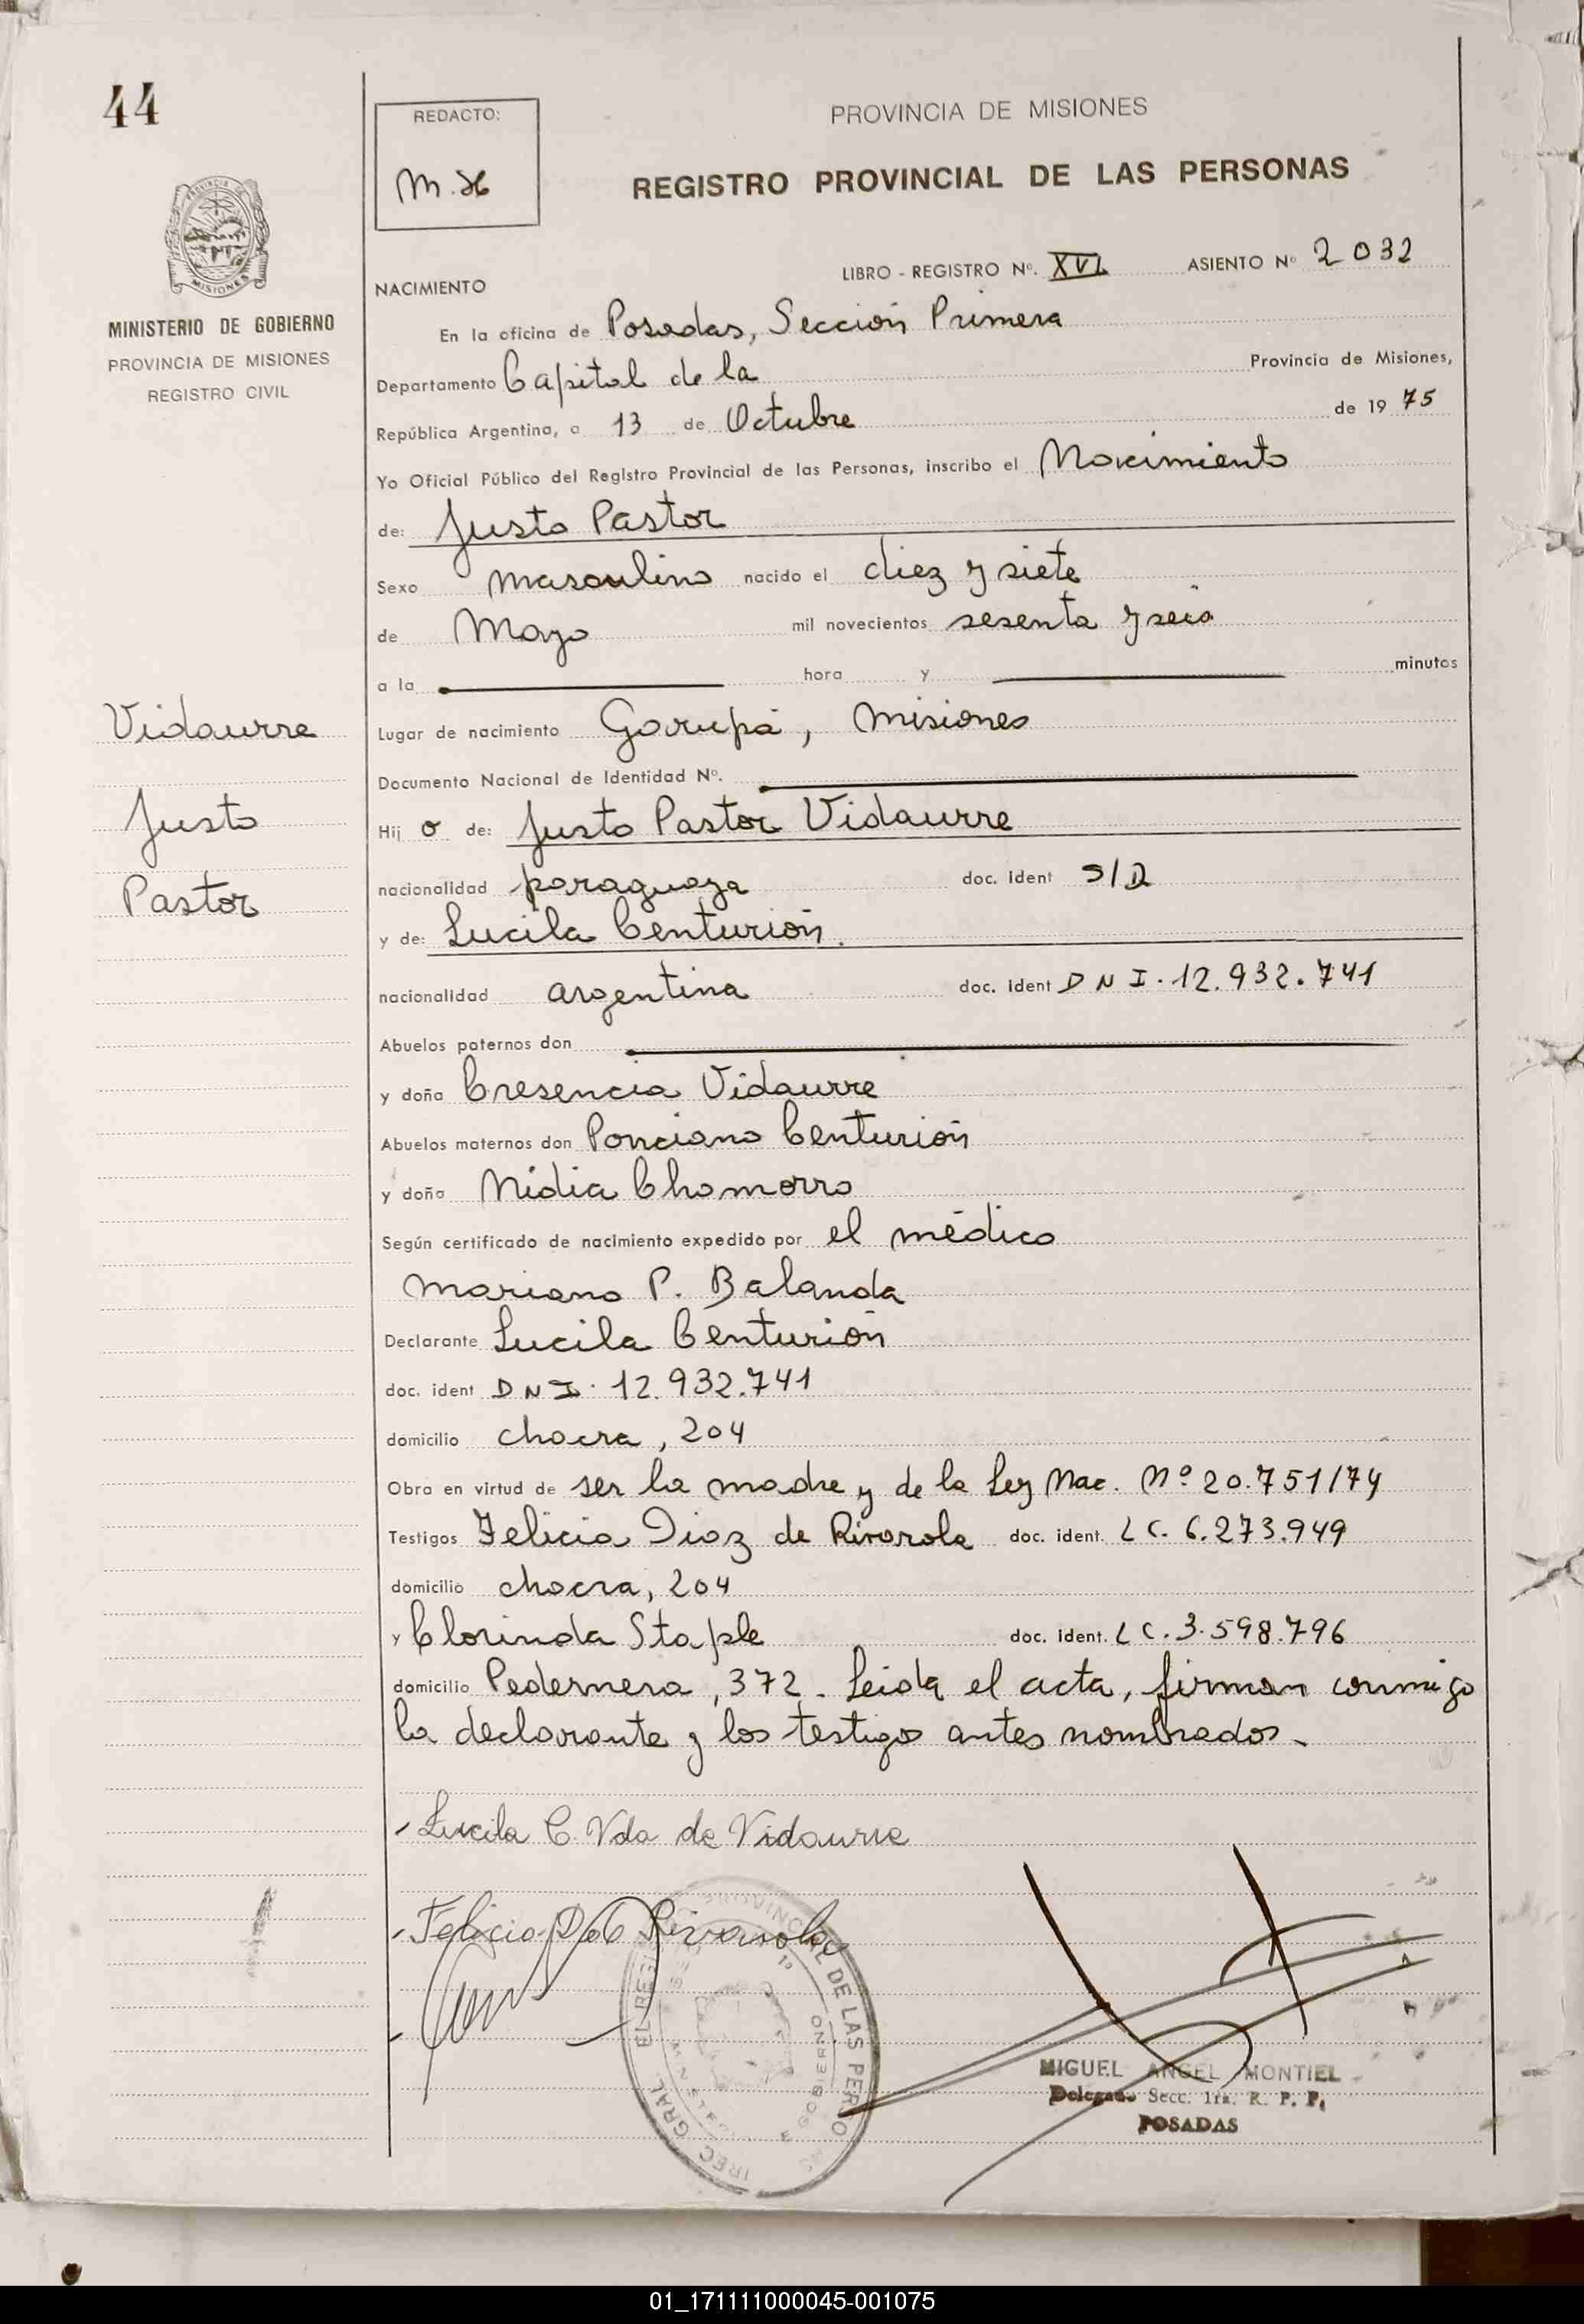 44
REDACTO:
M.H
PROVINCIA DE MISIONES
REGISTRO PROVINCIAL DE LAS PERSONAS
MISIONES
MINISTERIO DE GOBIERNO
PROVINCIA DE MISIONES
REGISTRO CIVIL
LIBRO - REGISTRO Nº. XVI ASIENTO Nº 2032
NACIMIENTO
En la oficina de Posadas, Sección Primera
Departamento Capital de la Provincia de Misiones,
República Argentina, a 13 de Octubre de 1975
Yo Oficial Público del Registro Provincial de las Personas, inscribo el Nacimiento
de: Justo Pastor
Sexo masculino nacido el diez y siete
de Mayo mil novecientos sesenta y seis
a la hora y minutos
Vidaurre
Justo
Pastor
Lugar de nacimiento Garupá, Misiones
Documento Nacional de Identidad Nº.
Hij o de: Justo Pastor Vidaurre
nacionalidad paraguaya doc. ident S/D
y de: Lucila Centurión.
nacionalidad argentina doc. ident DNI. 12.932.741
Abuelos paternos don
y doña Cresencia Vidaurre
Abuelos maternos don Ponciano Centurión
y doña Nidia Chamorro
Según certificado de nacimiento expedido por el médico
Mariano P. Balanda
Declarante Lucila Centurión
doc. ident DNI. 12.932.741
domicilio chacra, 204
Obra en virtud de ser la madre y de la Ley Nac. Nº 20.751/74
Testigos Felicia Diaz de Rivarola doc. ident. LC. 6.273.949
domicilio chacra, 204
y Clorinda Staple doc. ident. LC. 3.598.796
domicilio Pedernera, 372. Leida el acta, firman conmigo
la declarante y los testigos antes nombrados.
Lucila C Vda de Vidaurre
Felicia D de Rivarola
DE LAS PERSO
GRAL.
GOBIERNO
MIGUEL ANGEL MONTIEL
Delegado Secc. 1ra. R. P. P.
POSADAS
01_171111000045-001075